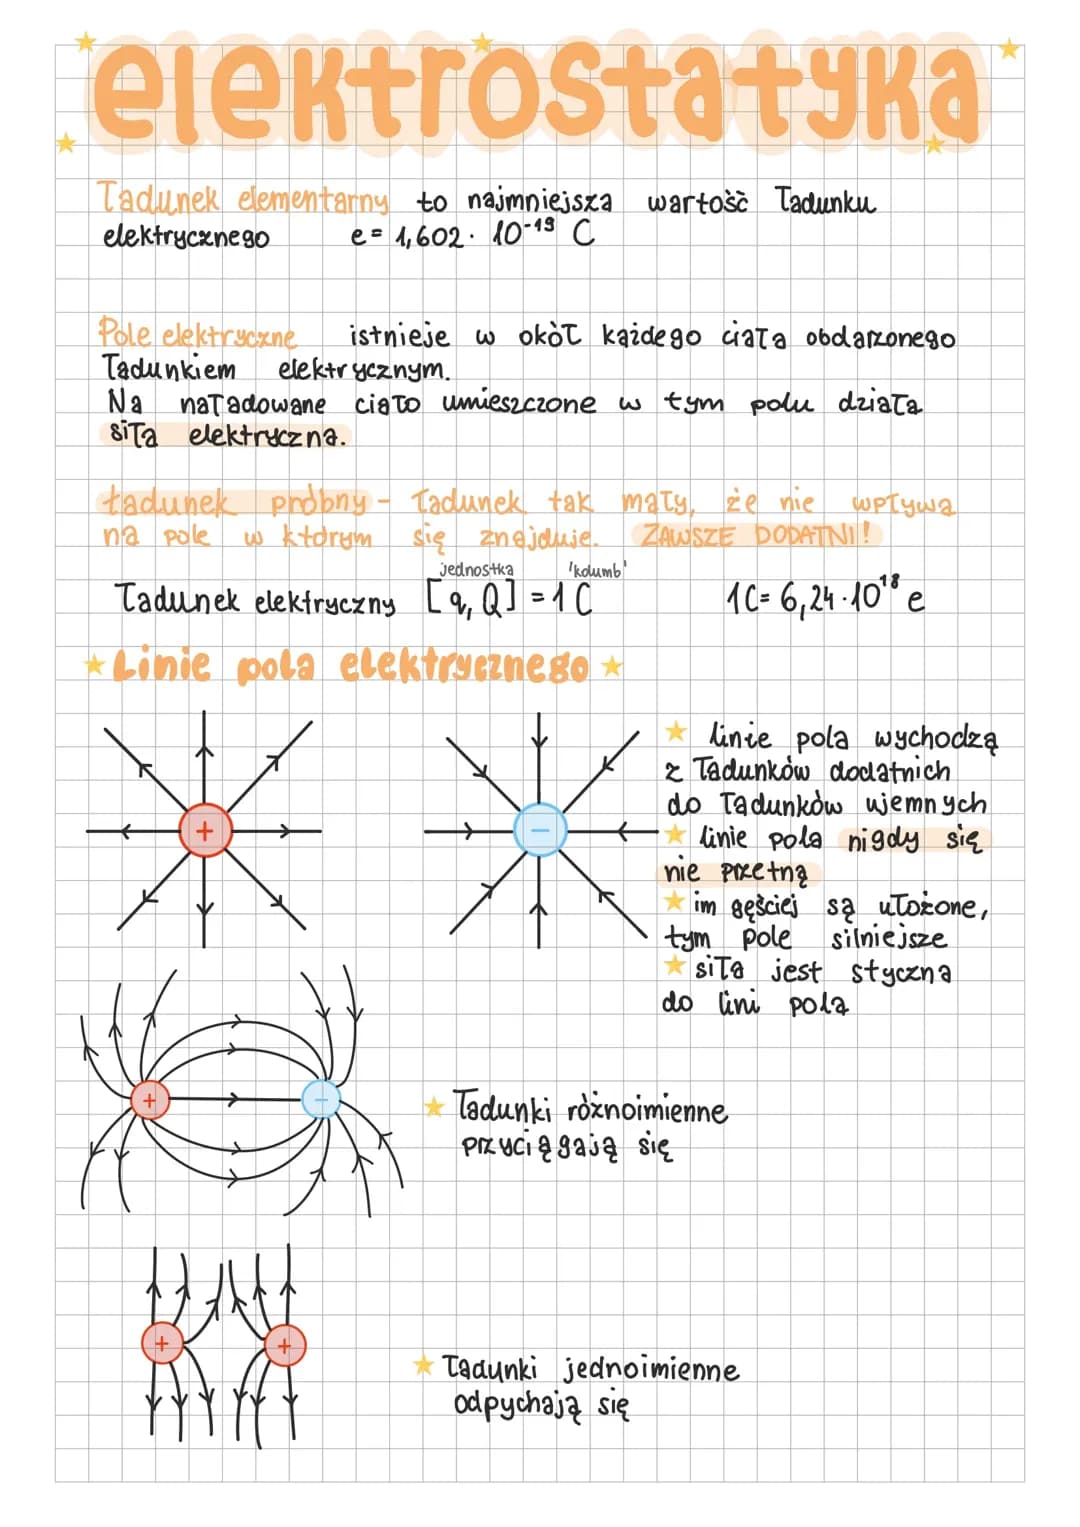 elektrostatyka
Ładunek elementarny to najmniejsza wartość ładunku
elektrycznego e = 1,602 · 10⁻¹⁹ C
Pole elektryczne istnieje w okół każdego ciała obdarzonego
ładunkiem elektrycznym.
Na naładowane ciało umieszczone w tym polu działa
siła elektryczna.
ładunek próbny - ładunek tak mały, że nie wpływa
na pole w którym się znajduje. ZAWSZE DODATNI!
jednostka 'kolumb'
Ładunek elektryczny [q, Q] = 1 C 1C = 6,24 · 10¹⁸ e
Linie pola elektrycznego
linie pola wychodzą
z ładunków dodatnich
do ładunków ujemnych
linie pola nigdy się
nie przetną
im gęściej są ułożone,
tym pole silniejsze
siła jest styczna
do lini pola
+
−
+
−
Ładunki różnoimienne
przyciągają się
+
+
Ładunki jednoimienne
odpychają się